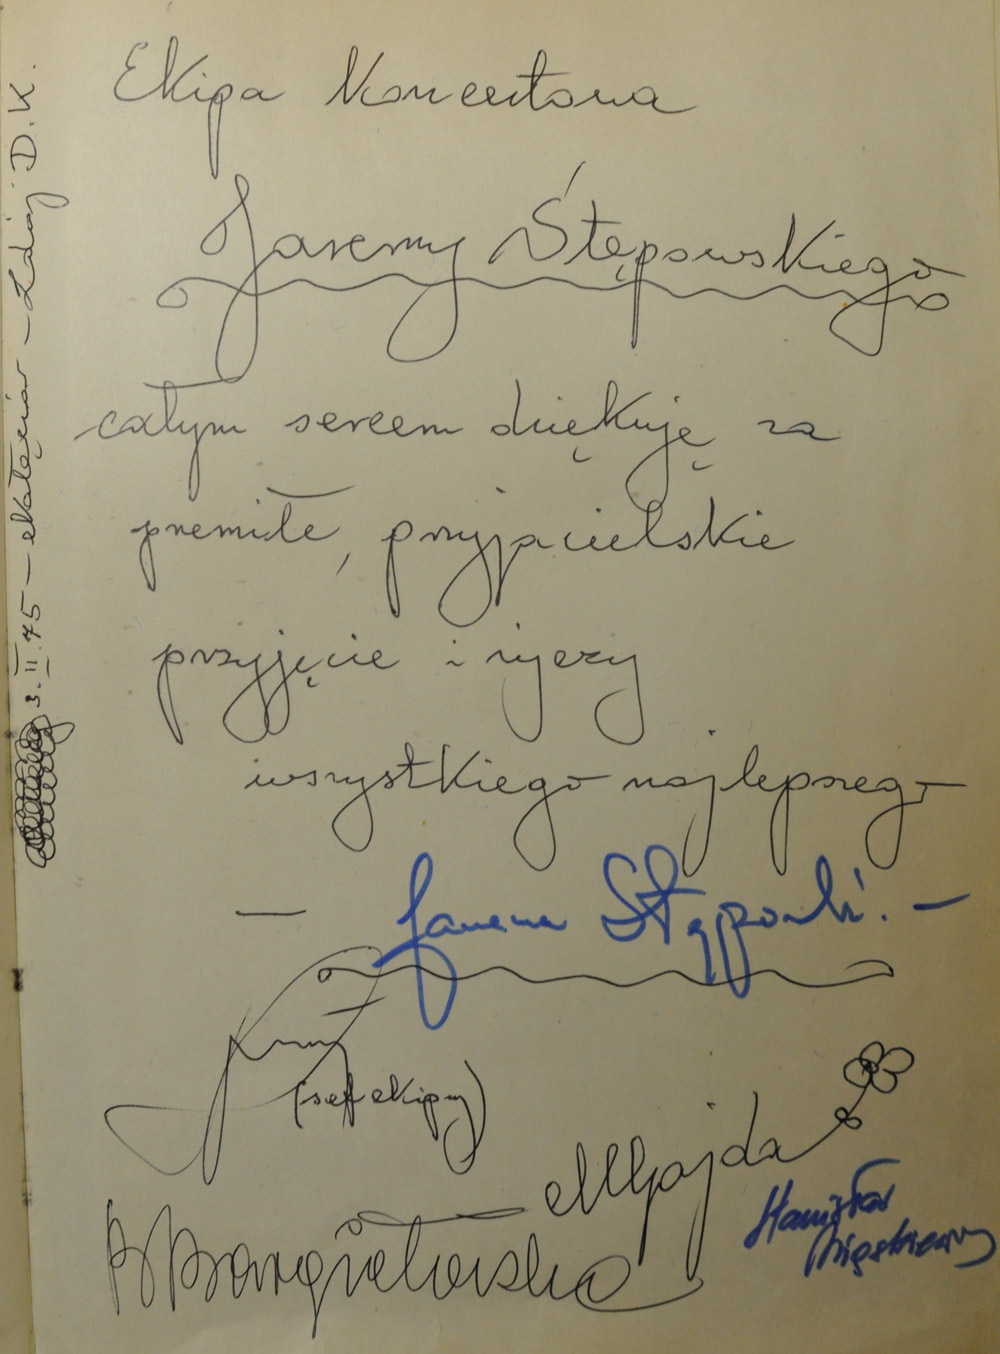 Ekipa Koncertowa
Jaremy Stępowskiego
całym sercem dziękuję za
premiłe, przyjacielskie
przyjęcie i życzy
wszystkiego najlepszego
— Jarema Stępowski. —
(szef ekipy)
MGajda
Stanisław
3.II.75 — D.K.